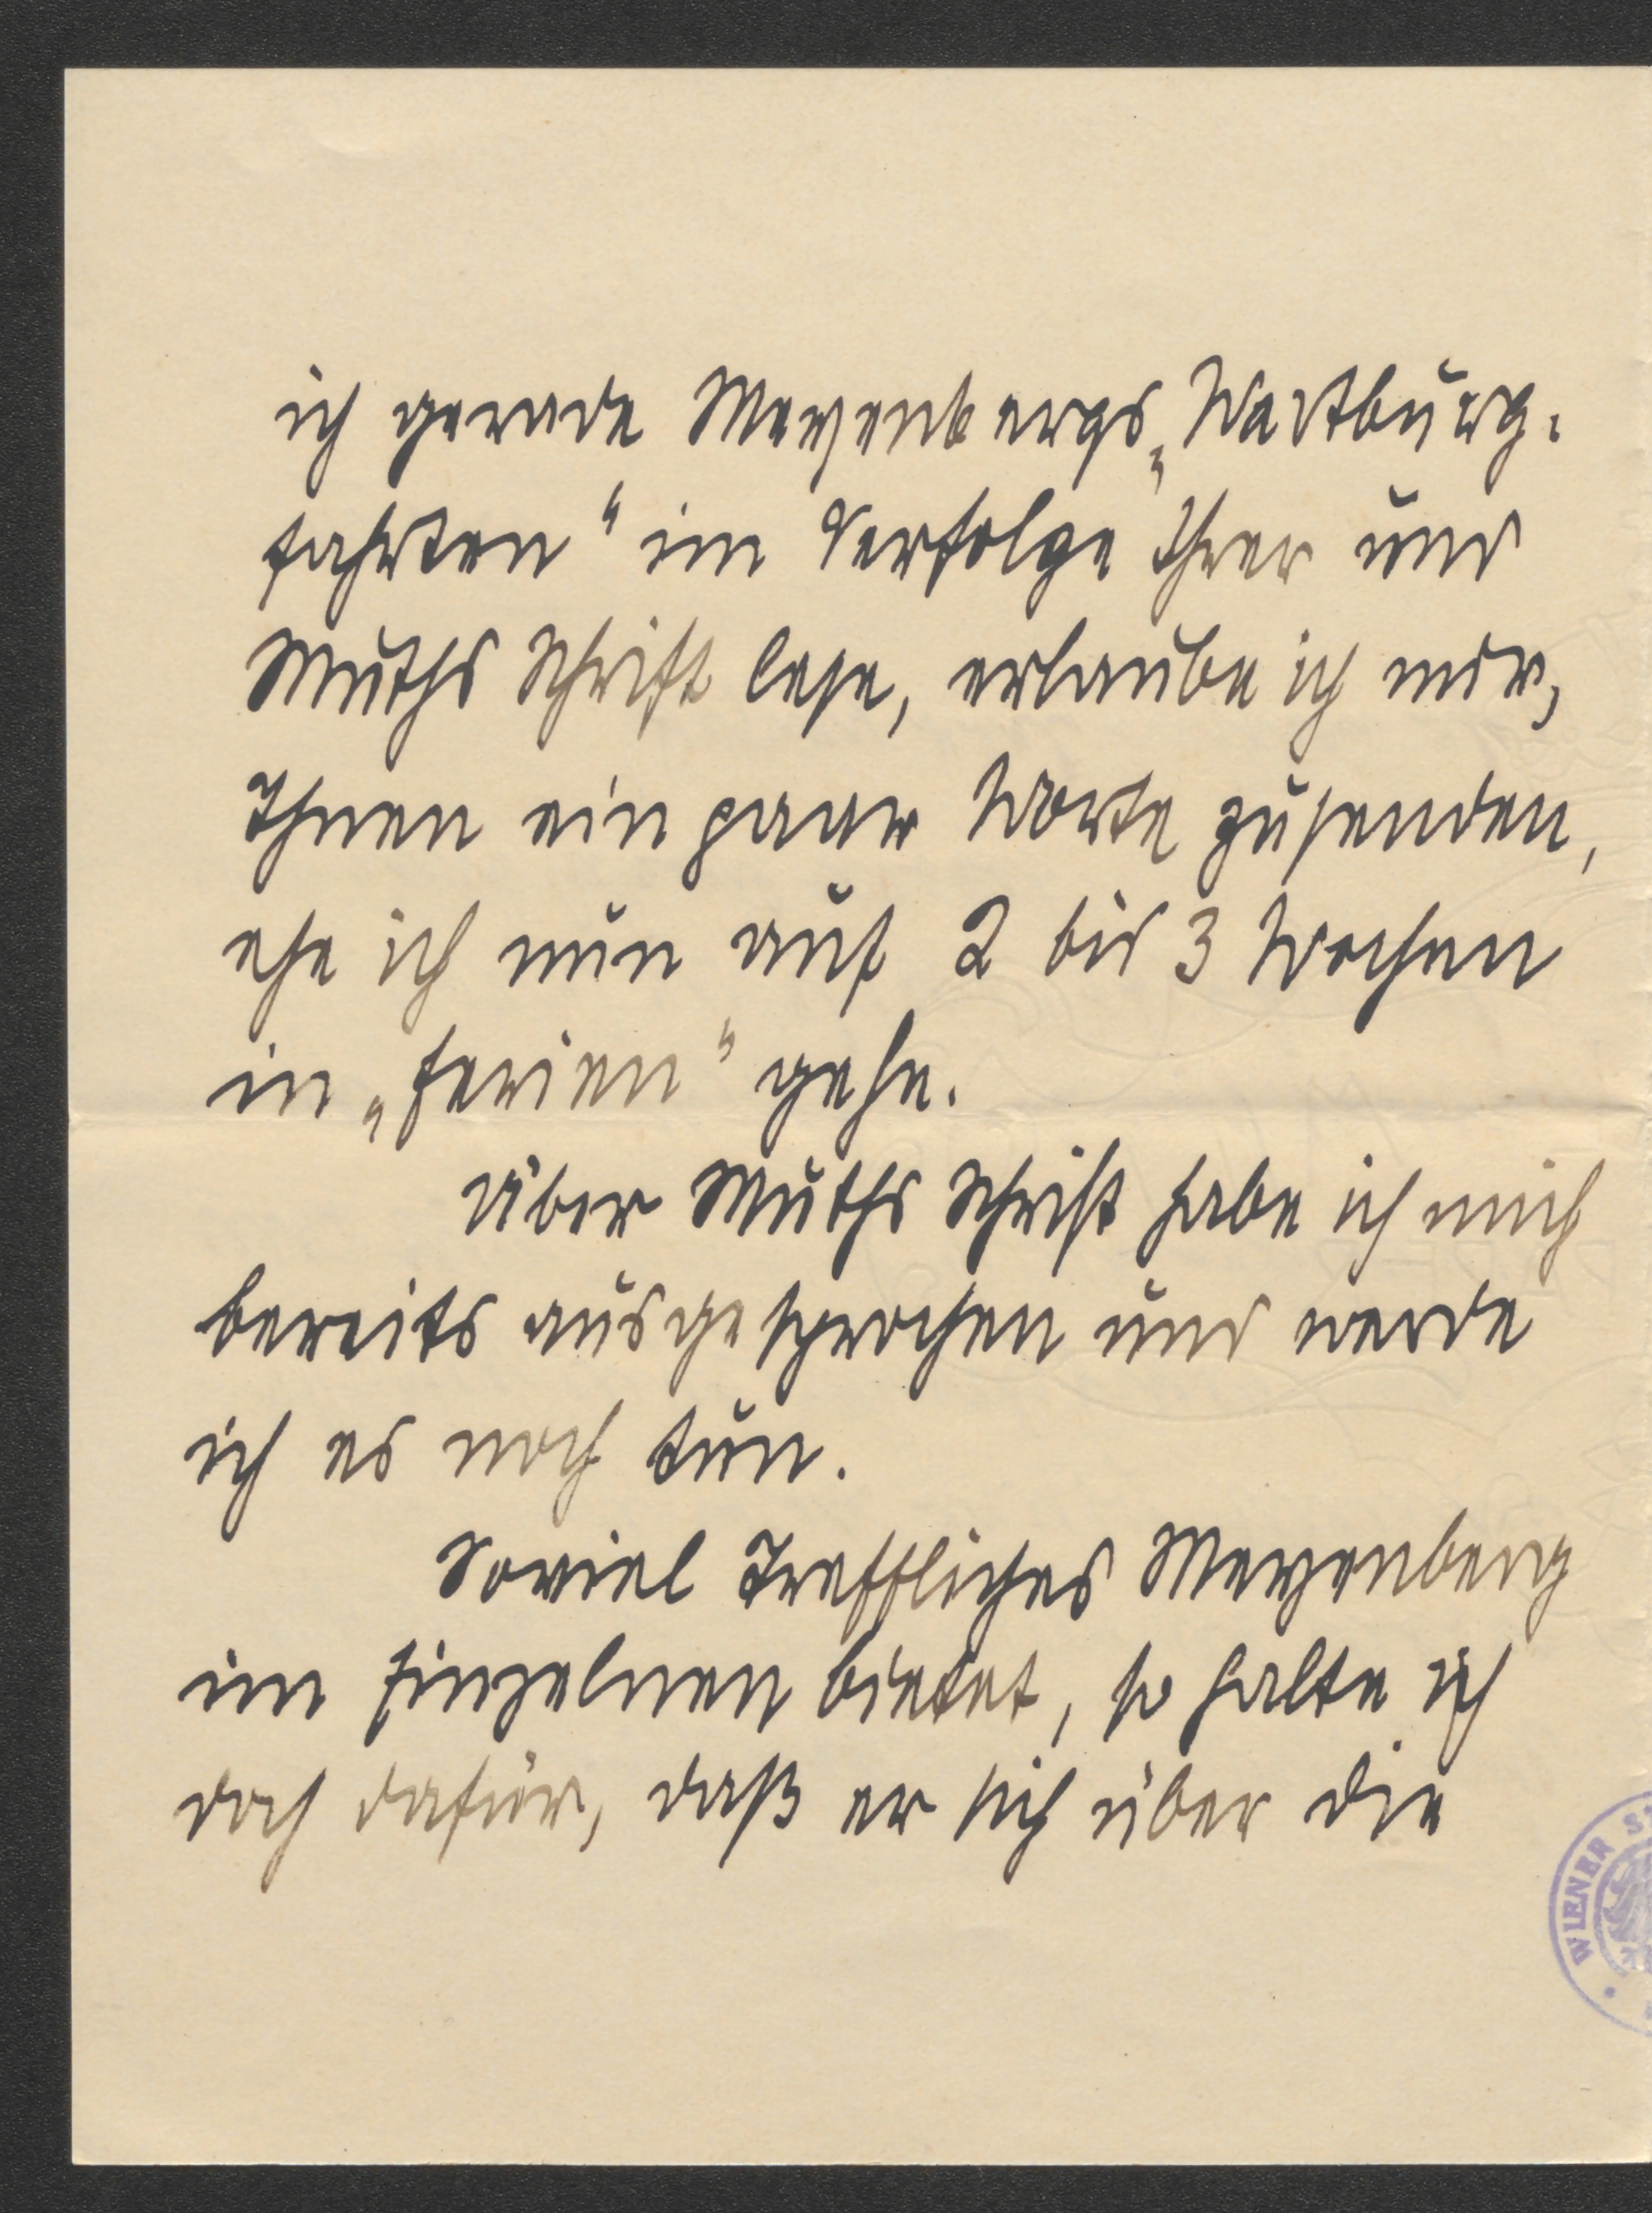 ich gerade Meyenbergs „Wartburg-
fahrten“ im Verfolge Ihrer und
Muths Schrift lese, erlaube ich mir,
Ihnen ein paar Worte zusenden,
ehe ich nun auf 2 bis 3 Wochen
in „Ferien“ gehe.
Über Muths Schrift habe ich mich
bereits ausgesprochen und werde
ich es noch tun.
Soviel Treffliches Meyenberg
im Einzelnen bietet, so halte ich
doch dafür, daß er sich über die
WIENER S